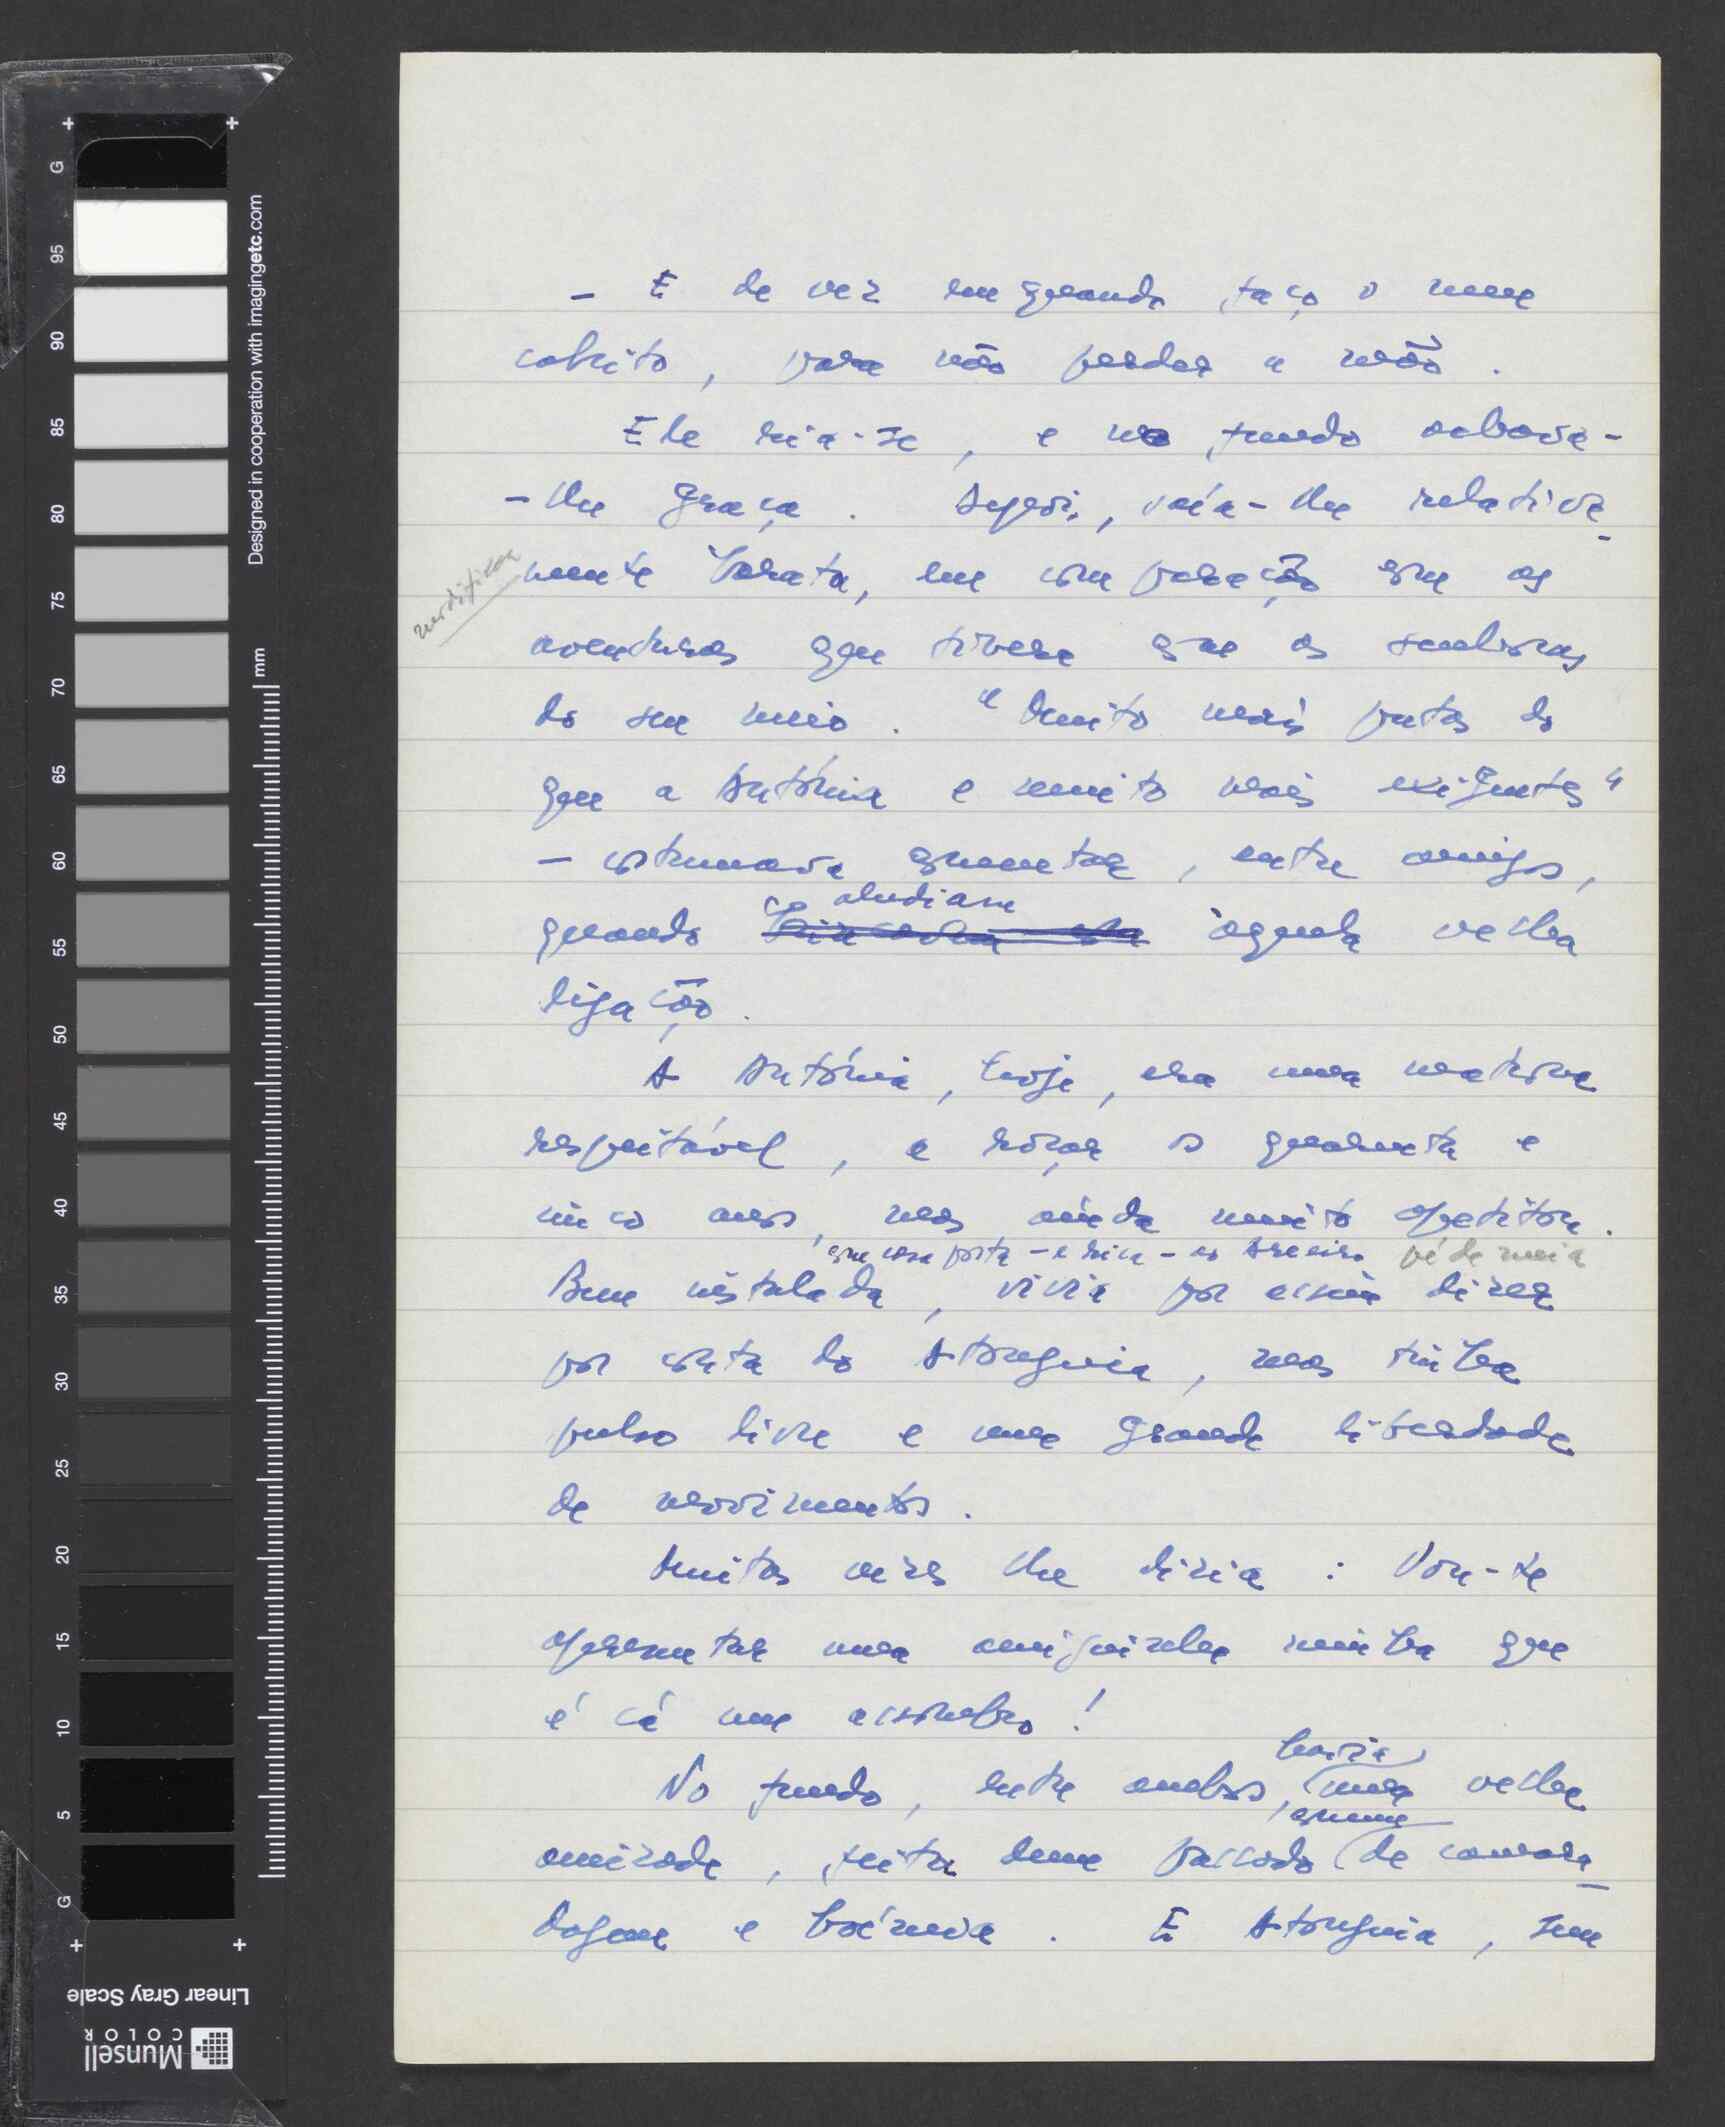 - E de vez em quando faço o meu
cabrito, para não perder a mão.
Ele ria-se, e no fundo achava-
-lhe graça. Depois, saía-lhe relativa-
modificar
mente barata, em comparação com as
aventuras que tivera com as senhoras
do seu meio. "Muito mais putas do
que a Antónia e muito mais exigentes"
- costumava comentar, entre amigos,
aludiam
quando àquela velha
ligação.
A Antónia, hoje, era uma matrona
respeitável, a roçar os quarenta e
cinco anos, mas ainda muito apetitosa.
com casa posta - e rica - ao Areeiro pé de meia
Bem instalada, vivia por assim dizer
por conta do Atouguia, mas tinha
pulso livre e uma grande liberdade
de movimentos.
Muitas vezes lhe dizia: Vou-te
apresentar uma amiguinha minha que
é cá um assombro!
havia
No fundo, entre ambos, uma velha
comum
amizade, feita dum passado de camara-
dagem e boémia. E Atouguia, sem
G
95
90
85
80
75
70
65
60
55
50
45
40
35
30
25
20
15
10
5
G
Designed in cooperation with imagingetc.com
mm
Linear Gray Scale
Munsell
COLOR